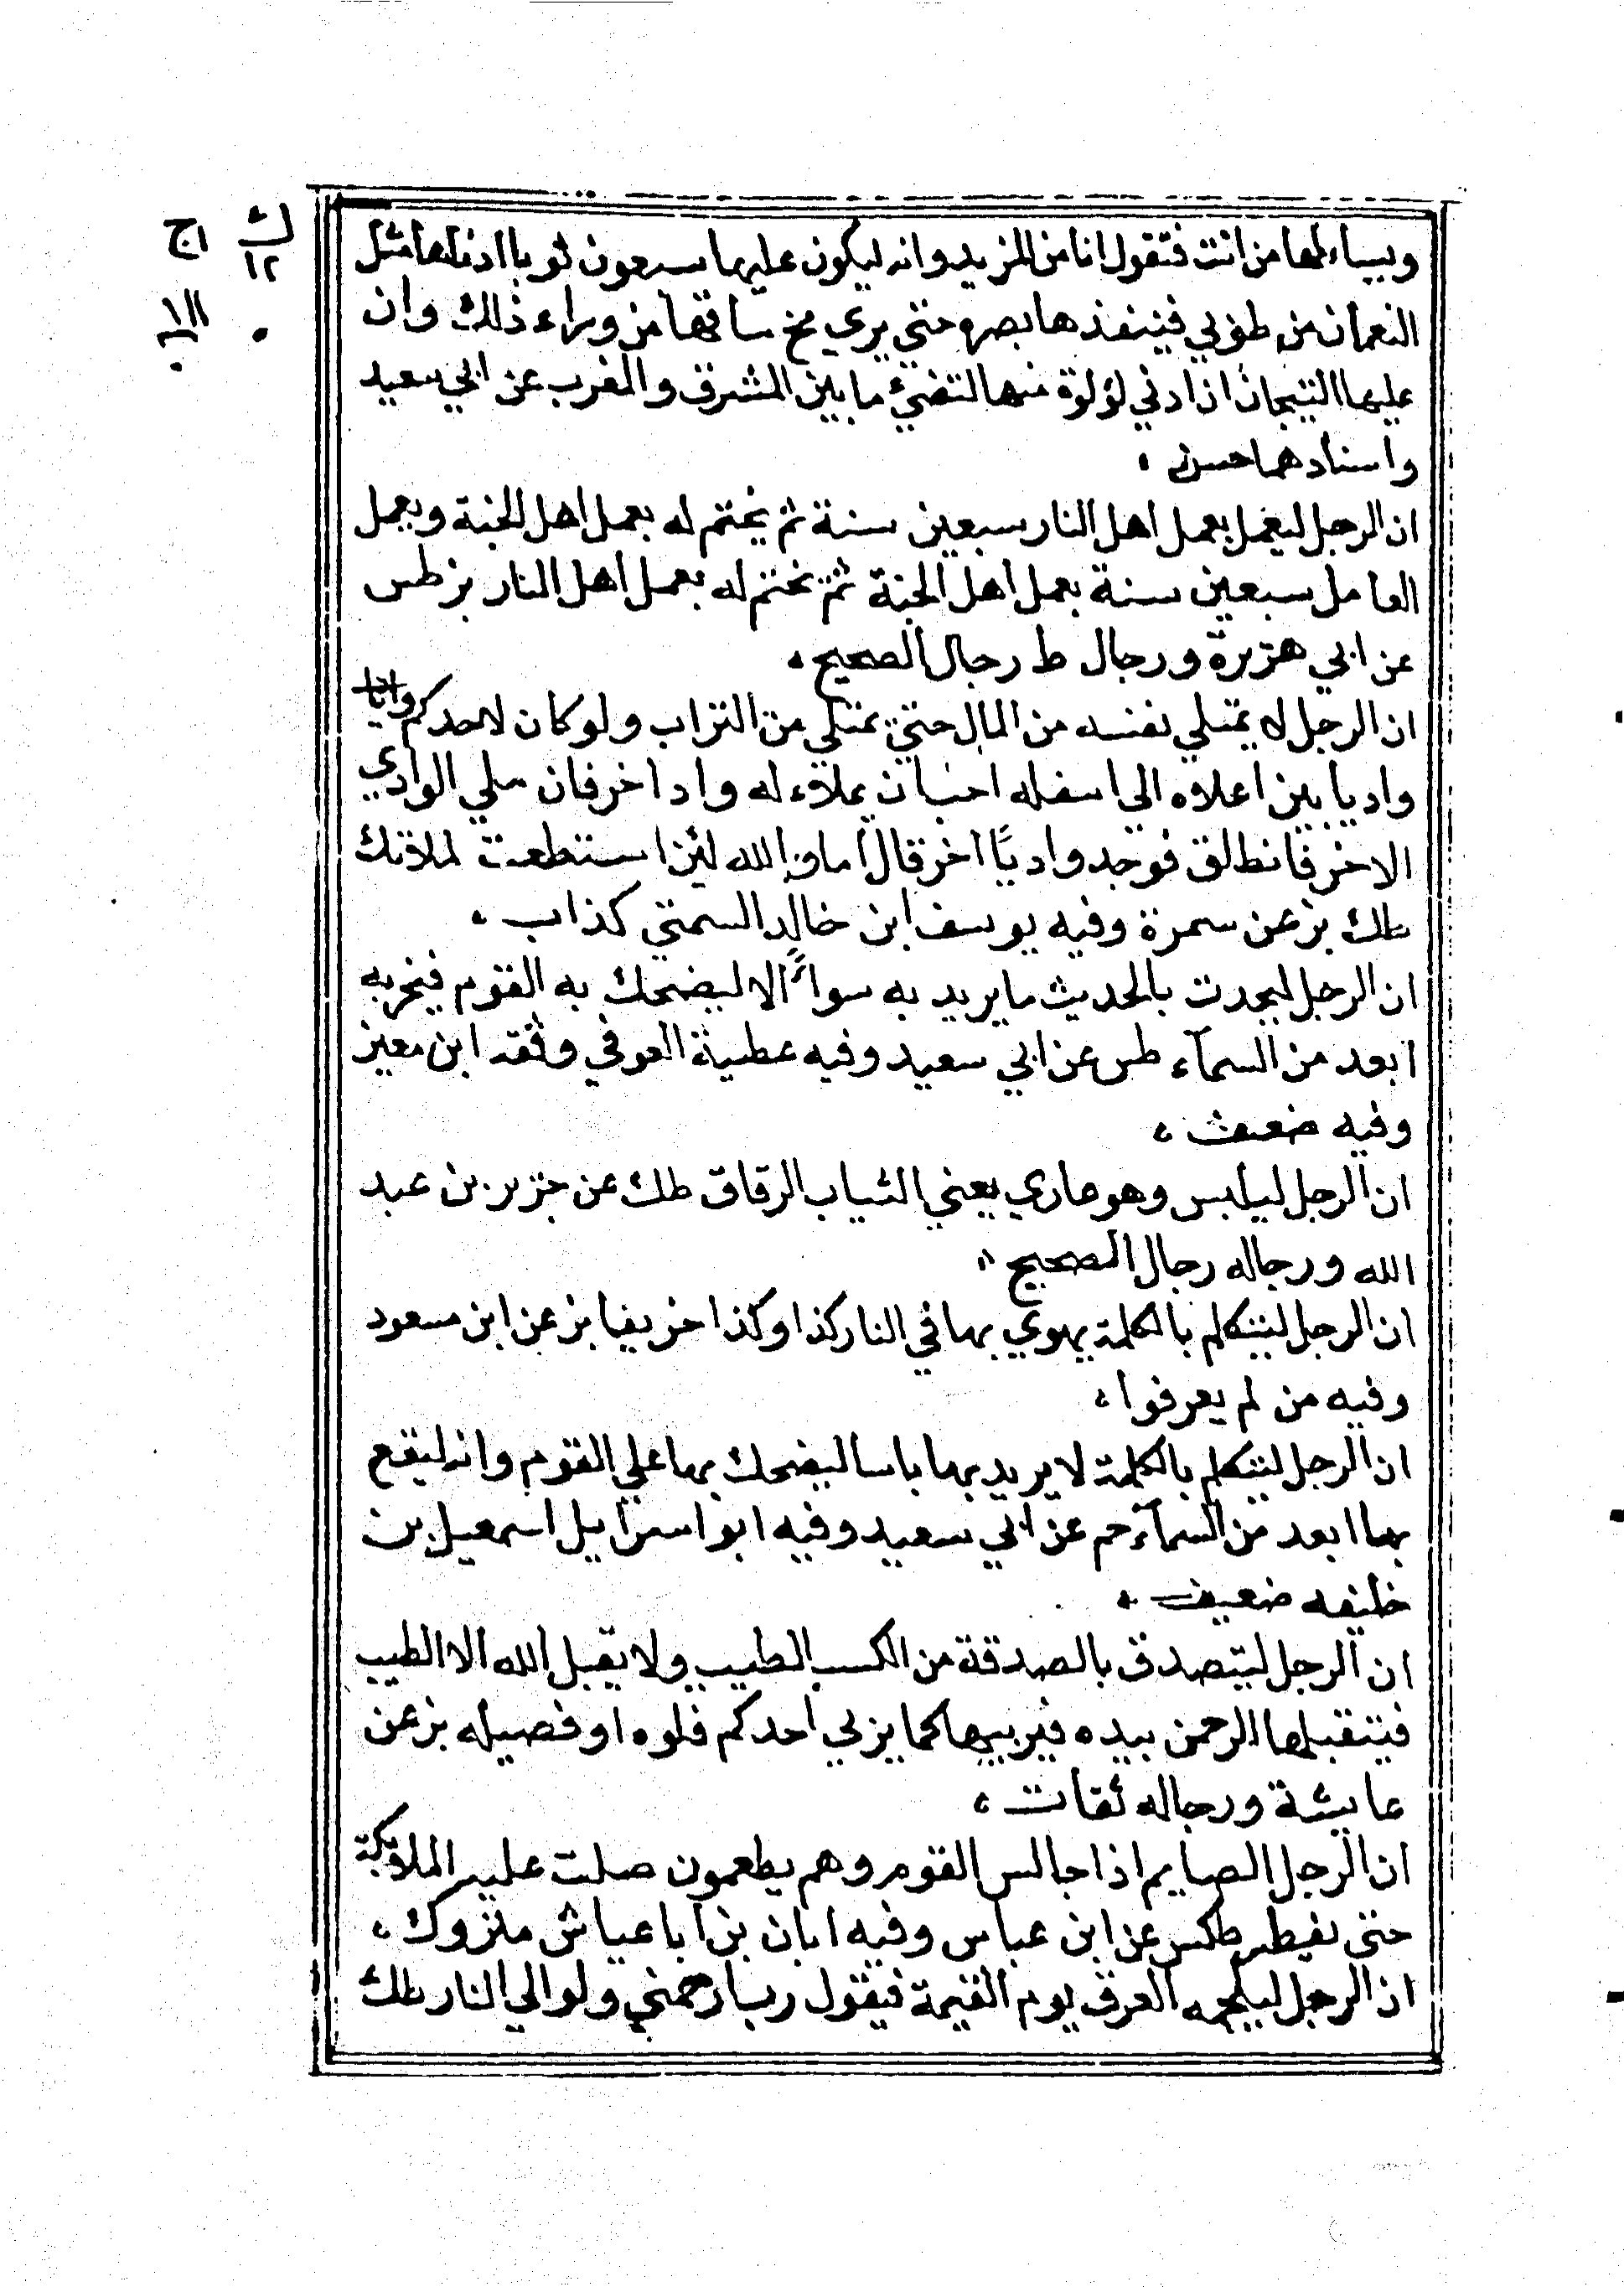 ويساءلها من انت فتقول انا من المزيد وانه ليكون عليها سبعون ثوبا ادناها مثل
النعمان من طوبي فينفذها بصره حتي يري مخ ساقها من وراء ذلك وان
عليها التيجان ان ادني لؤلوة منها لتضئ ما بين المشرق والمغرب عن ابي سعيد
واسنادهما حسن ،
ان الرجل ليعمل بعمل اهل النار سبعين سنة ثم يختم له بعمل اهل الجنة ويعمل
العامل سبعين سنة بعمل اهل الجنة ثم يختم له بعمل اهل النار بز طس
عن ابي هريرة ورجال ط رجال الصحيح ،
ان الرجل لا يمتلي نفسه من المال حتي يمتلي من التراب ولو كان لاحدكم
واديا بين اعلاه الي اسفله احب ان يملاء له واد اخر فان ملي الوادي
الاخر فانطلق فوجد واديًا اخر قال اما والله لئن استطعت لملاتك
طك بز عن سمرة وفيه يوسف ابن خالد السمتي كذاب ،
ان الرجل ليحدث بالحديث ما يريد به سواءً الا ليضحك به القوم فيخر به
ابعد من السمآء طس عن ابي سعيد وفيه عطية العوفي وثقه ابن معين
وفيه ضعف ،
ان الرجل ليلبس وهو عاري يعني الثياب الرقاق طك عن جرير بن عبد
الله ورجاله رجال الصحيح ،
ان الرجل ليتكلم بالكلمة يهوي بها في النار كذا وكذا خريفا بز عن ابن مسعود
وفيه من لم يعرفوا ،
ان الرجل ليتكلم بالكلمة لا يريد بها باسا ليضحك بها علي القوم وانه ليقع
بها ابعد من السمآء حم عن ابي سعيد وفيه ابو اسراييل اسمعيل بن
خليفه ضعيف ،
ان الرجل ليتصدق بالصدقة من الكسب الطيب ولا يقبل الله الا الطيب
فيتقبلها الرحمن بيده فيربيها كما يربي احدكم فلوه او فصيله بز عن
عايشة ورجاله ثقات ،
ان الرجل الصايم اذا جالس القوم وهم يطعمون صلت عليه الملائكة
حتي يفطر طكس عن ابن عباس وفيه ابان بن ابا عياش متروك ،
ان الرجل ليلجمه العرق يوم القيمة فيقول رب ارحمني ولو الي النار طك